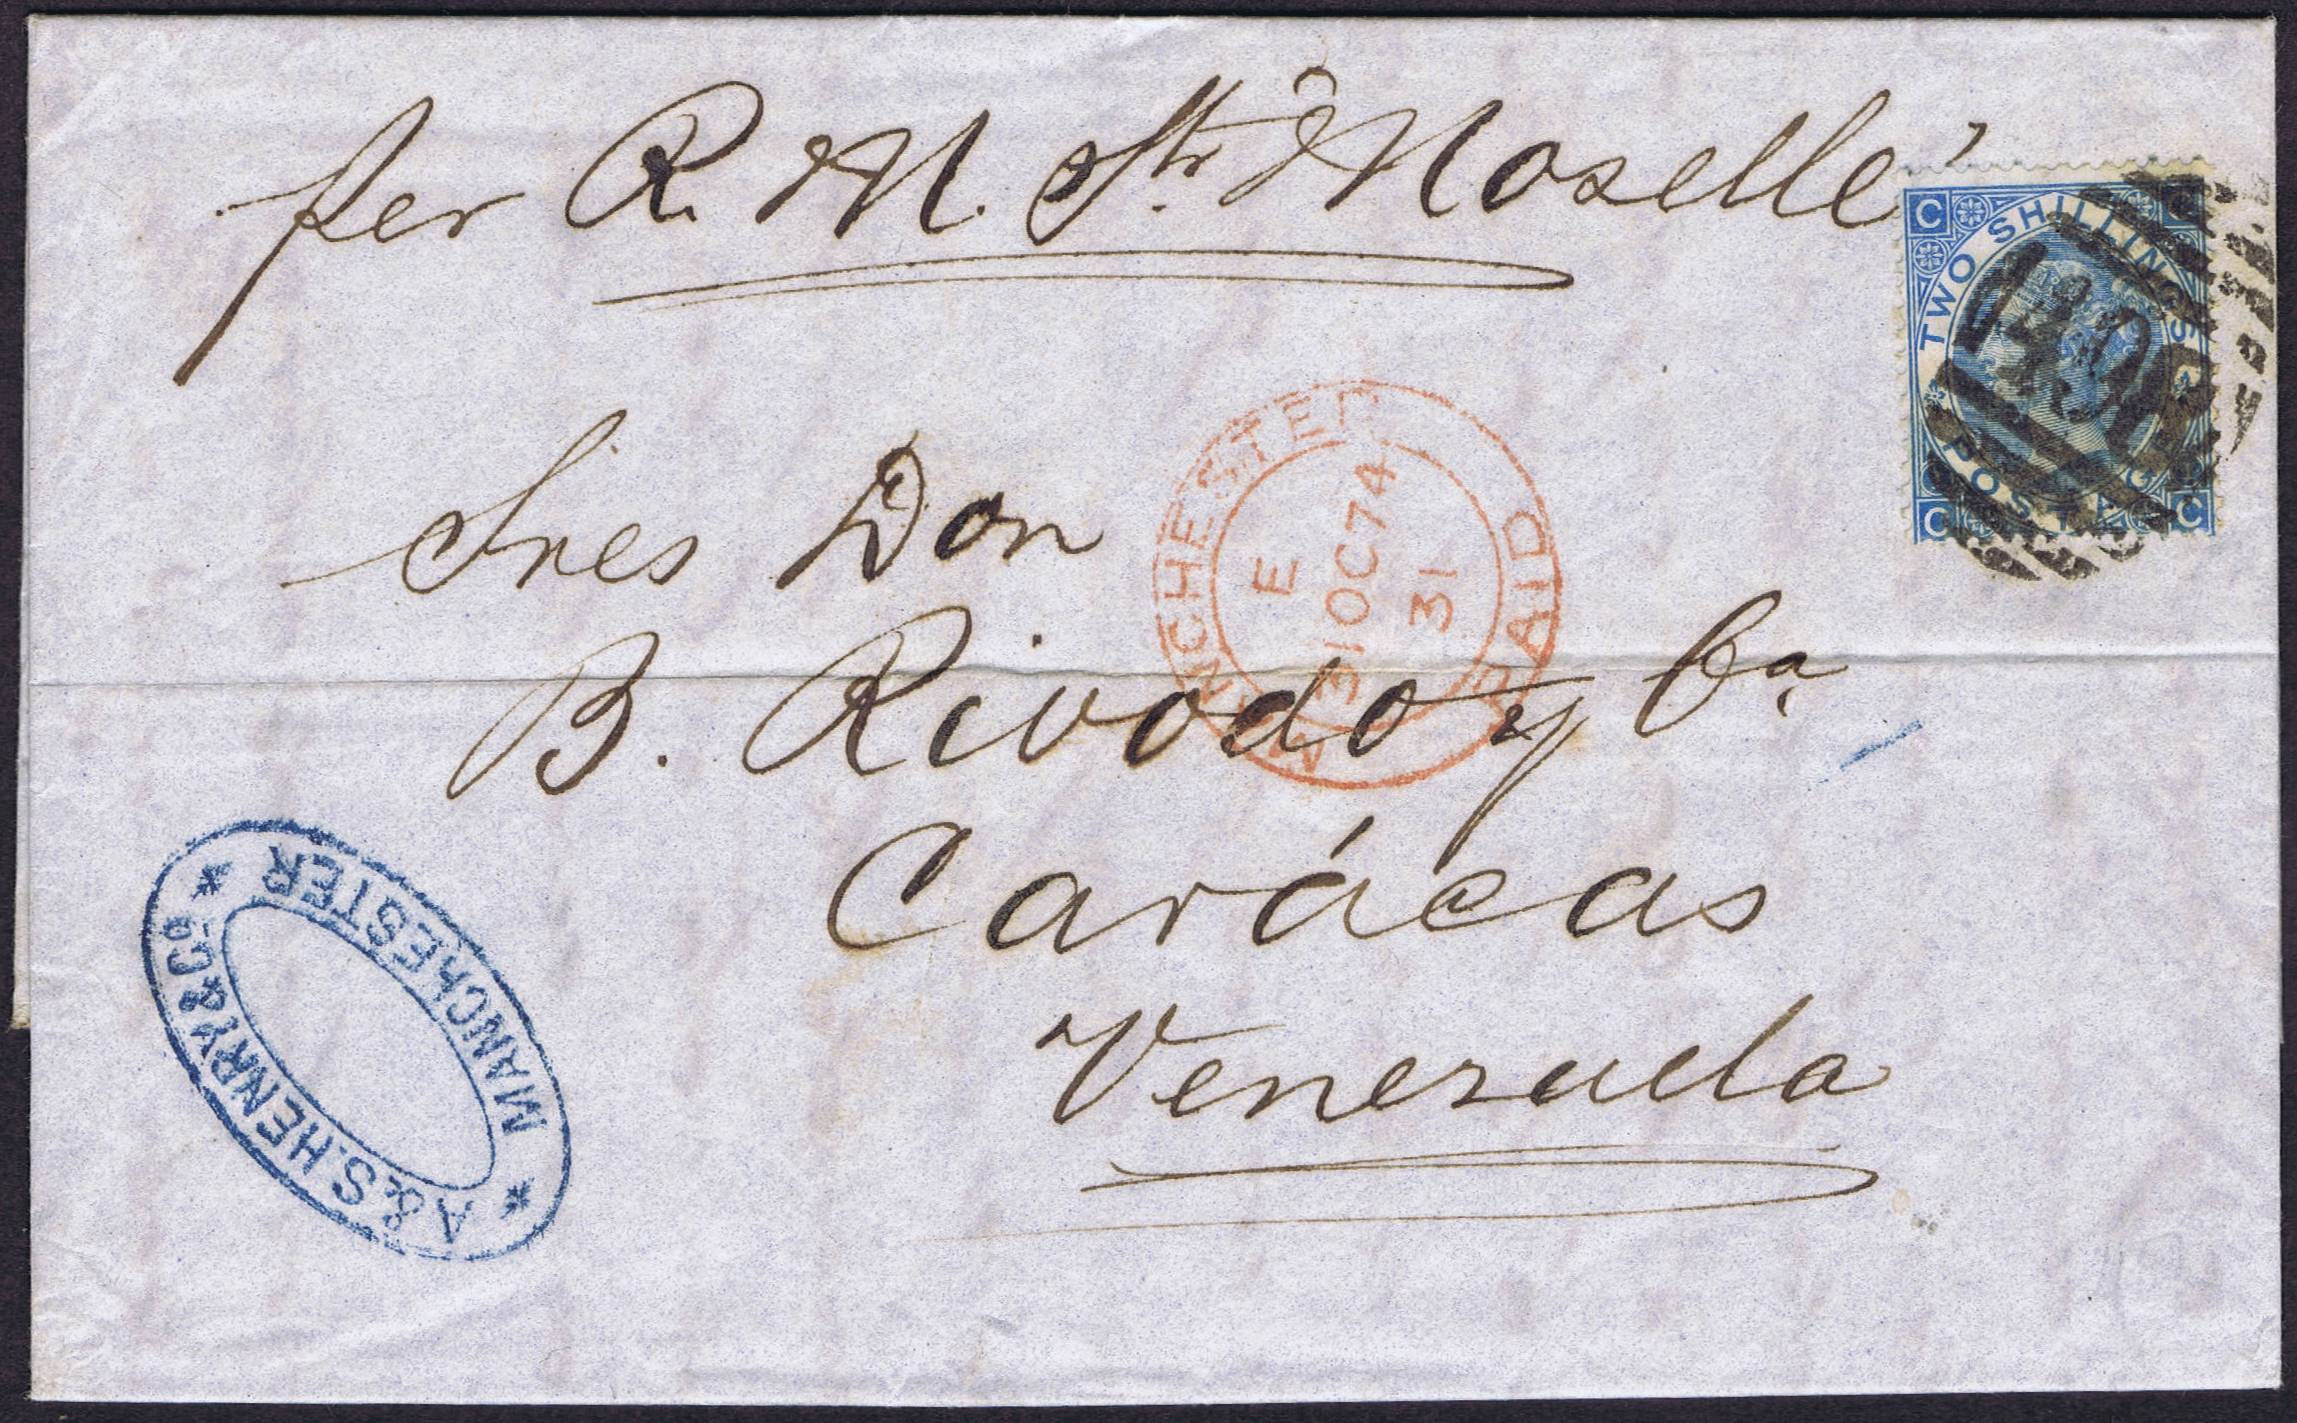 per R. M. Str. "Moselle"
TWO SHILLINGS
C
C C
POSTAGE
Sres Don
MANCHESTER
E
31 OC 74
31
PAID
B. Rivodo y Ca.
Carácas
Venezuela
A & S. HENRY & Co.
MANChESTER